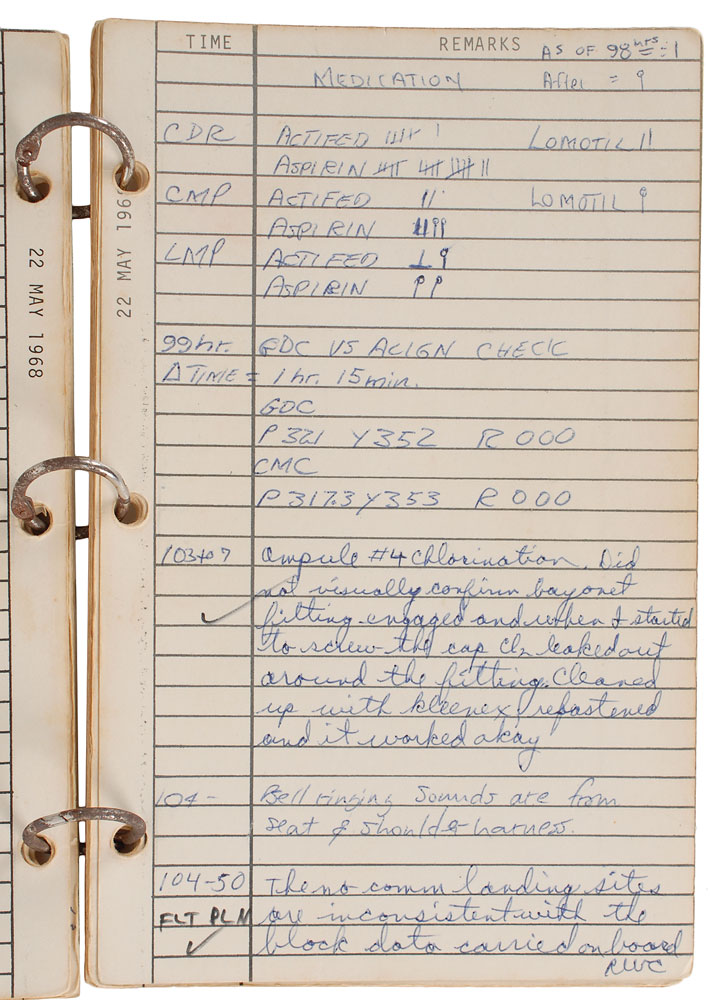 22 MAY 1968
22 MAY 196
TIME REMARKS AS OF 98hrs = 1
MEDICATION After = ỉ
CDR ACTIFED LOMOTIL ||
ASPIRIN
CMP ACTIFED || LOMOTIL
ASPIRIN
LMP ACTIFED
ASPIRIN
99hr. GDC VS ALIGN CHECK
Δ TIME = 1 hr. 15 min.
GDC
P 321 Y 352 R 000
CMC
P 317.3 Y 353 R 000
103+07 Ampule #4 Chlorination. Did
not visually confirm bayonet
fitting engaged and when I started
to screw the cap Cl2 leaked out
around the fitting. Cleaned
up with kleenex, refastened
and it worked okay
104- Bell ringing sounds are from
seat & shoulder harness.
104-50 The no-comm landing sites
FLT PLN are inconsistent with the
block data carried onboard
RWC